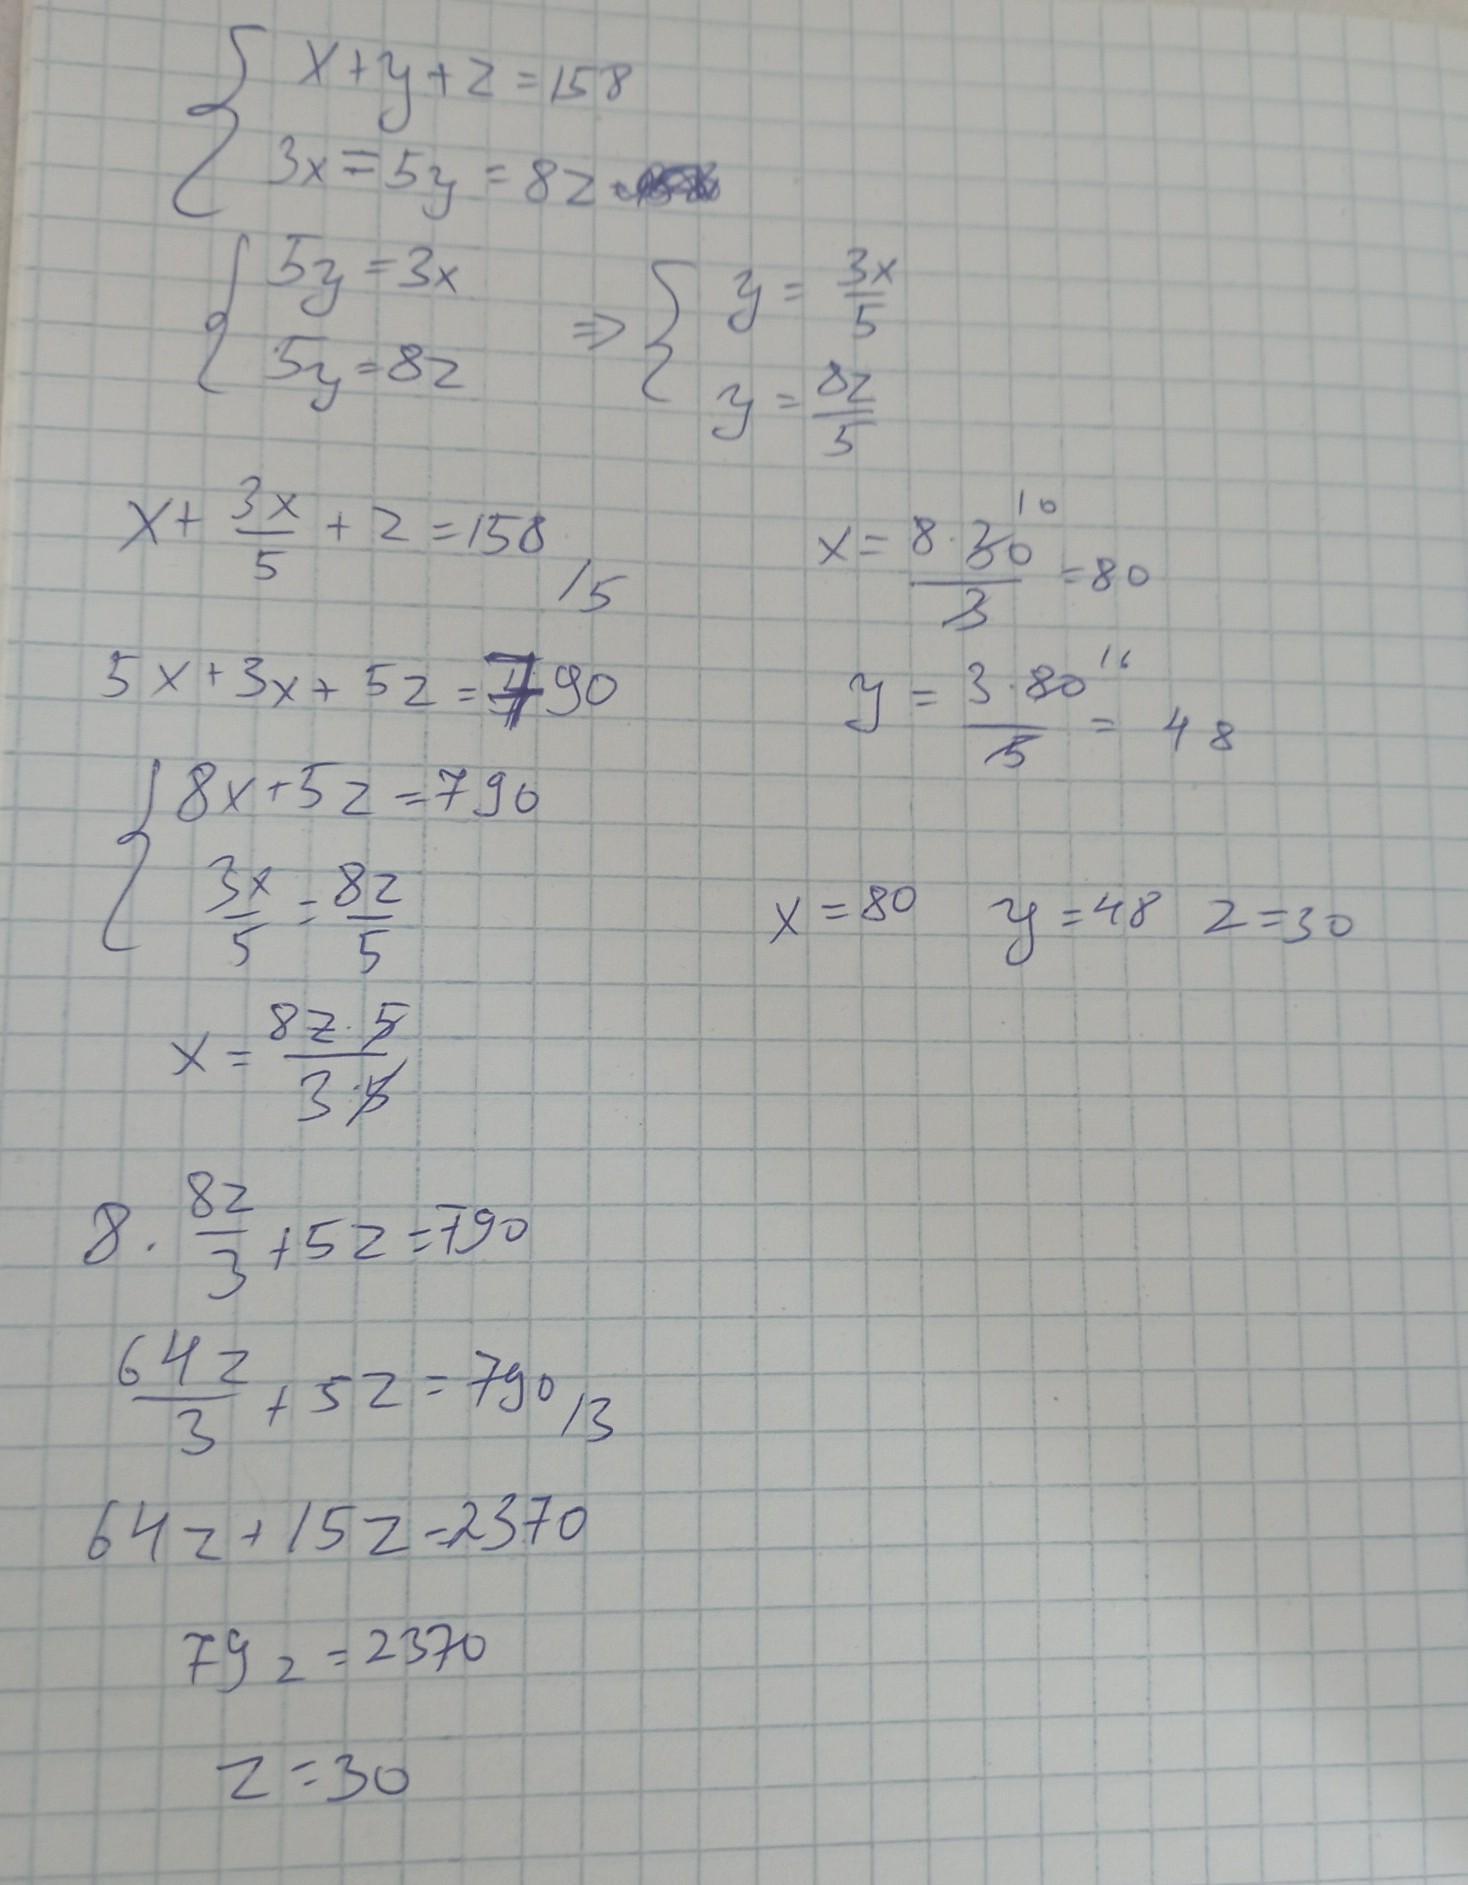 x+y+z=158
3x=5y=8z
5y=3x
5y=8z
⇒ y = 3x/5
y = 8z/5
x + 3x/5 + z = 158 /5
5x+3x+5z=790
8x+5z=790
3x/5 = 8z/5
x = 8z·5/3·5
8· 8z/3 +5z=790
64z/3 + 5z = 790 /3
64z+15z=2370
79z=2370
z=30
x = 8·30 10/3 = 80
y = 3·80 16/5 = 48
x=80 y=48 z=30